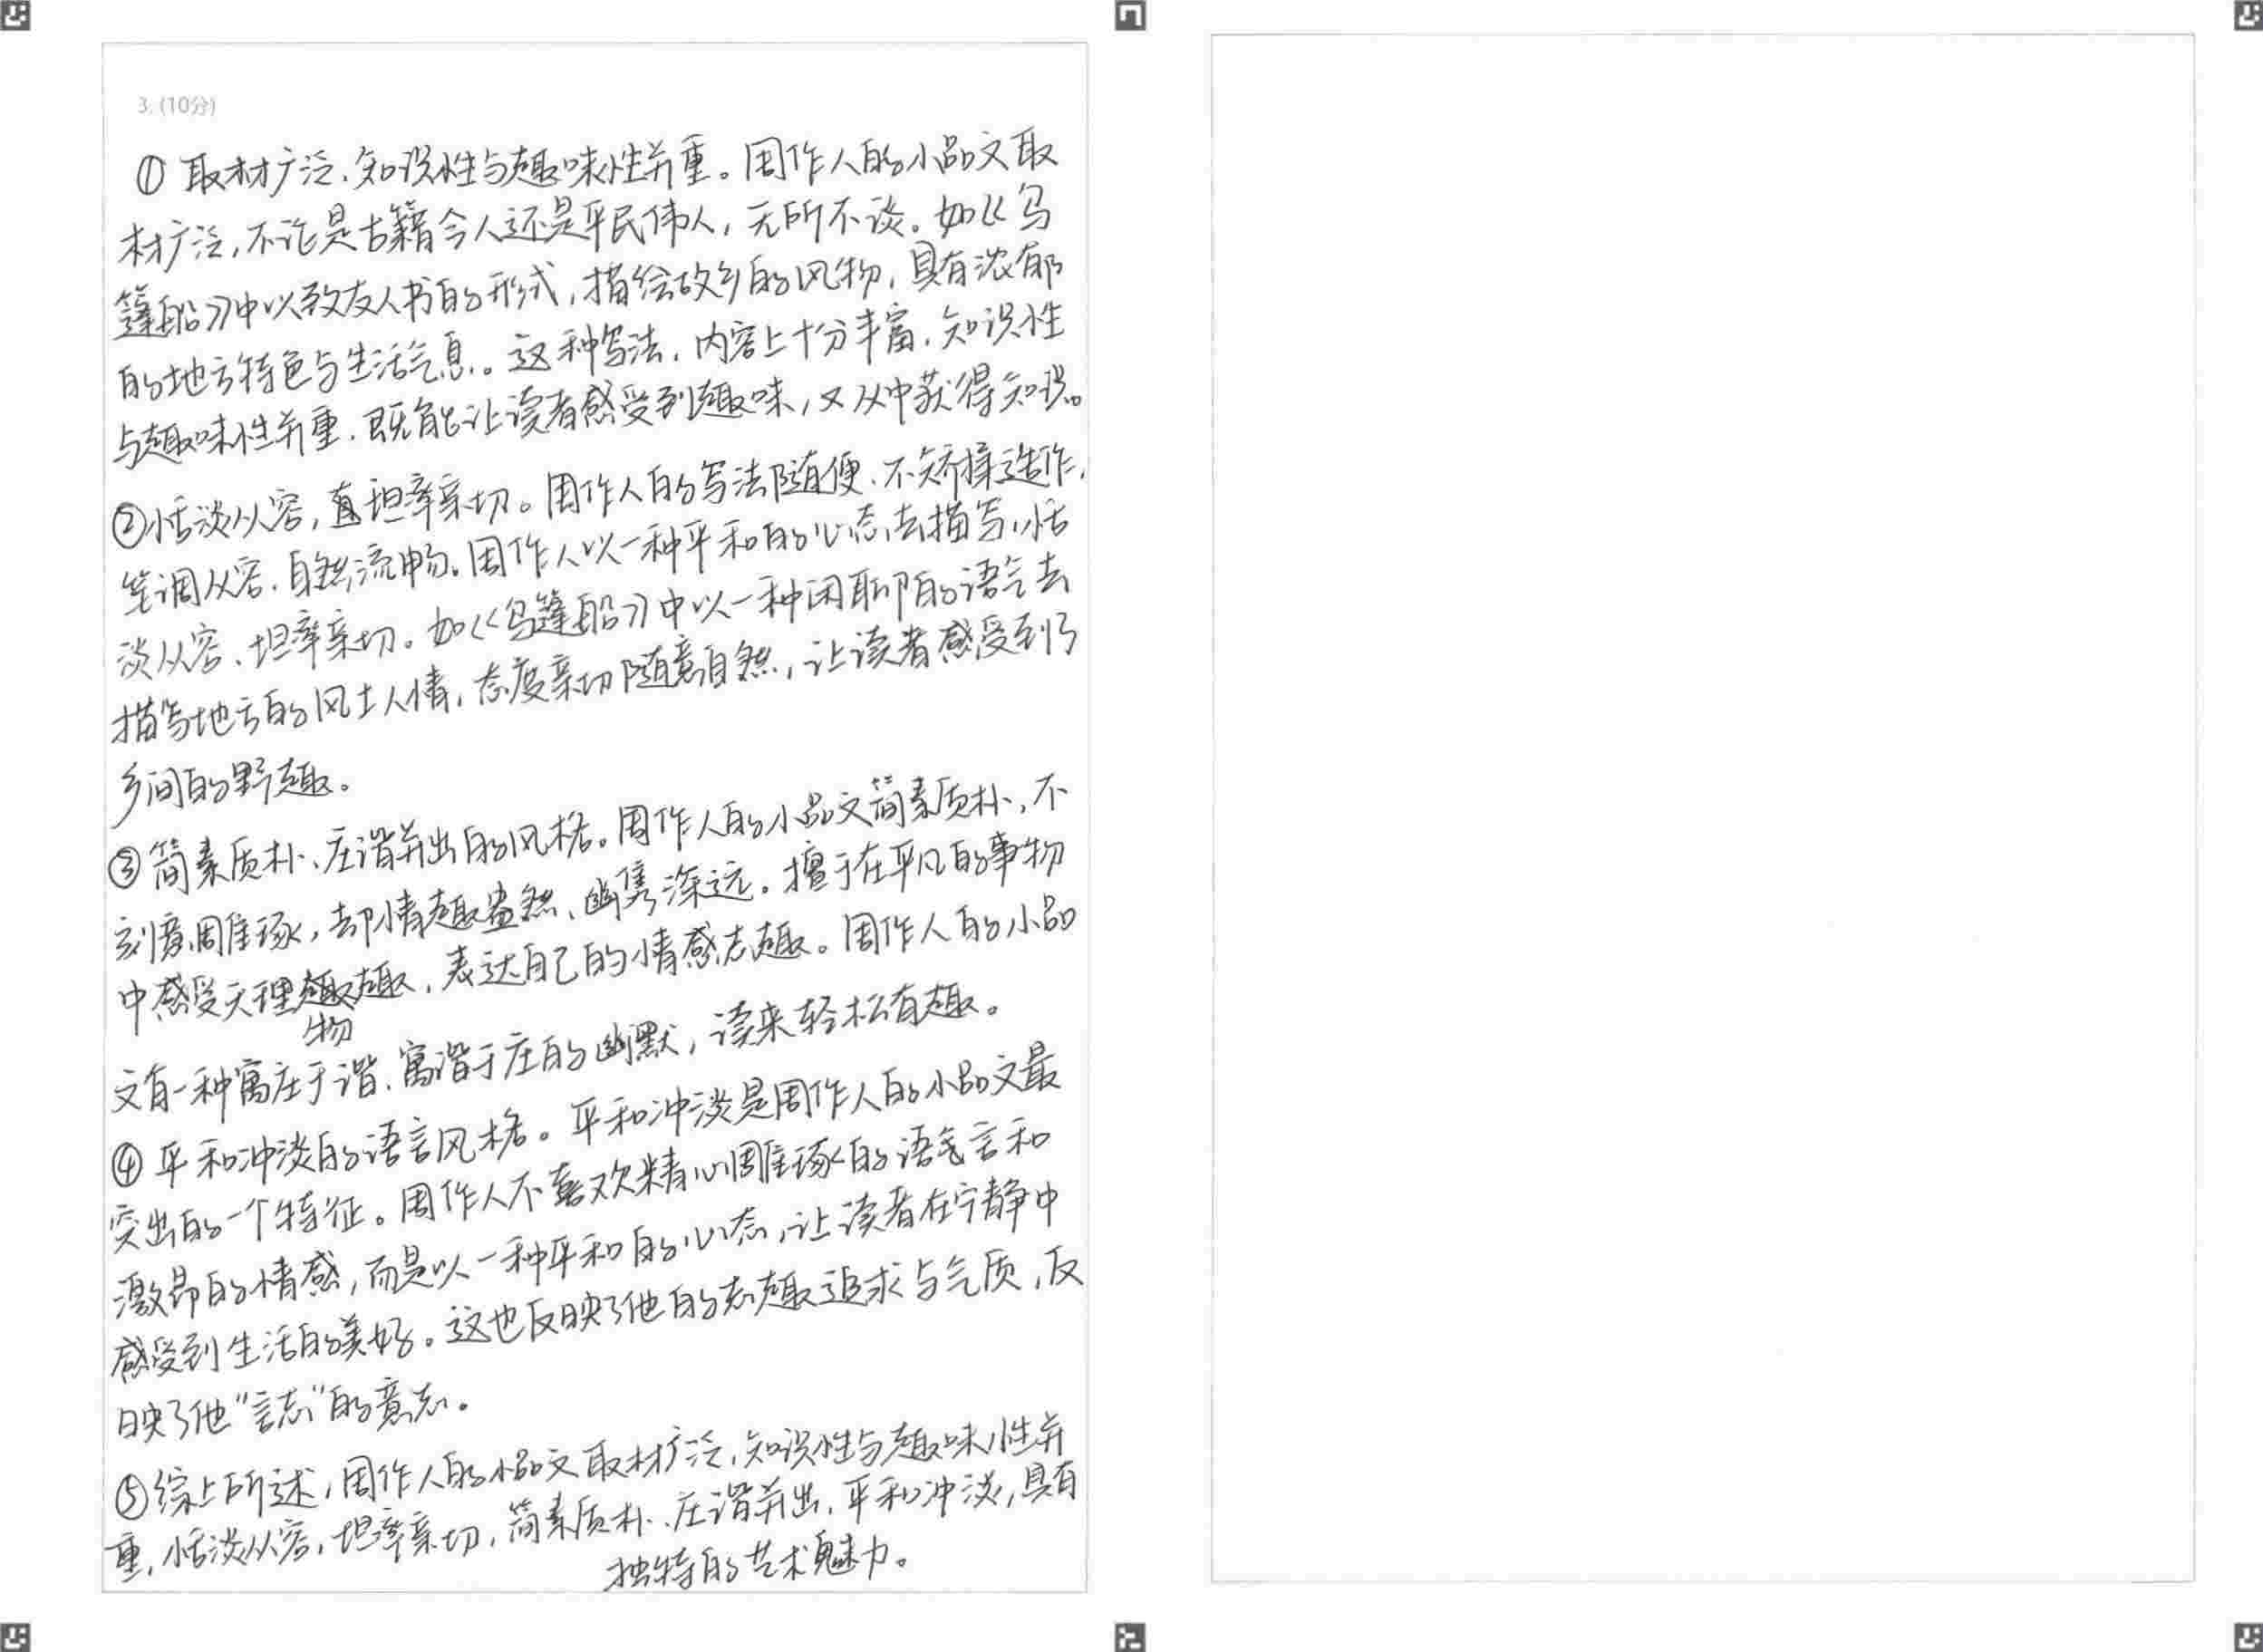 3. (10分)
① 取材广泛、知识性与趣味性并重。周作人的小品文取
材广泛,不论是古籍今人还是平民伟人,无所不谈。如《乌
篷船》中以致友人书的形式,描绘故乡的风物,具有浓郁
的地方特色与生活气息。这种写法,内容上十分丰富,知识性
与趣味性并重,既能让读者感受到趣味,又从中获得知识。
②恬淡从容,坦率亲切。周作人的写法随便、不矫揉造作,
笔调从容、自然流畅。周作人以一种平和的心态去描写,恬
淡从容、坦率亲切。如《乌篷船》中以一种闲聊的语气去
描写地方的风土人情,态度亲切随意自然,让读者感受到了
乡间的野趣。
③简素质朴、庄谐并出的风格。周作人的小品文简素质朴,不
刻意雕琢,却情趣盎然、幽隽深远。擅于在平凡的事物
中感受天理物趣,表达自己的情感志趣。周作人的小品
文有一种寓庄于谐、寓谐于庄的幽默,读来轻松有趣。
④ 平和冲淡的语言风格。平和冲淡是周作人的小品文最
突出的一个特征。周作人不喜欢精心雕琢的语言和
激昂的情感,而是以一种平和的心态,让读者在宁静中
感受到生活的美好。这也反映了他的志趣追求与气质,反
映了他“言志”的意志。
⑤综上所述,周作人的小品文取材广泛,知识性与趣味性并
重,恬淡从容,坦率亲切,简素质朴、庄谐并出,平和冲淡,具有
独特的艺术魅力。